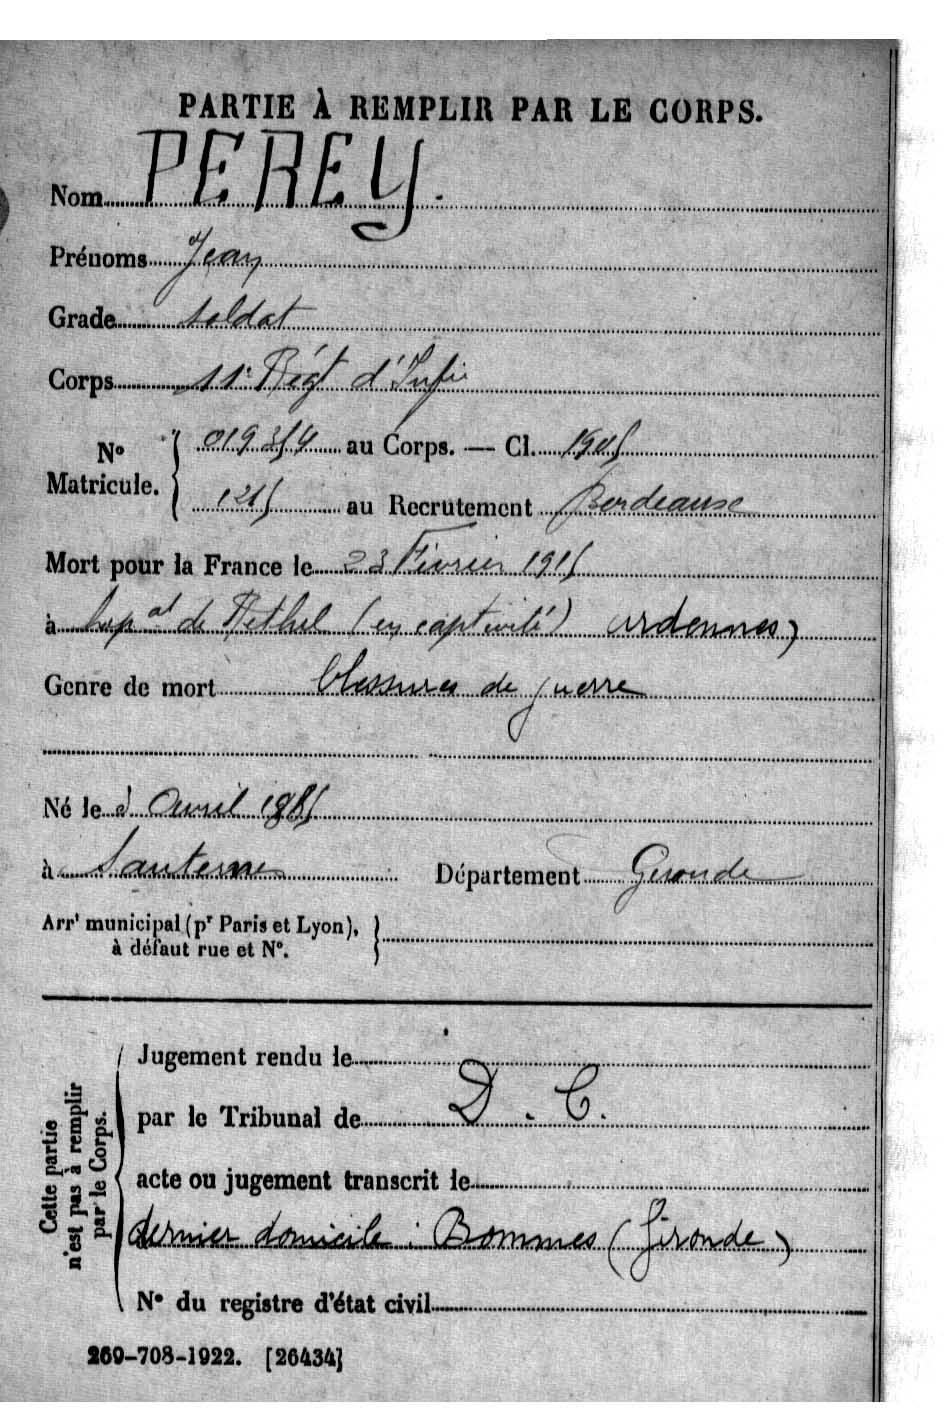 PARTIE À REMPLIR PAR LE CORPS.
Nom PEREY.
Prénoms Jean
Grade soldat
Corps 11e Régt d'Infie
No Matricule. 019354 au Corps. — Cl. 1905
1215 au Recrutement Bordeaux
Mort pour la France le 23 Février 1915
à hopal de Rethel (en captivité) Ardennes)
Genre de mort blessures de guerre
Né le Avril 1885
à Sauternes Département Gironde
Arrt municipal (pr Paris et Lyon),
à défaut rue et No.
Jugement rendu le
par le Tribunal de D. C.
acte ou jugement transcrit le
dernier domicile : Bommes (Gironde)
No du registre d'état civil
Cette partie
n'est pas à remplir
par le Corps.
269-708-1922. [26434]